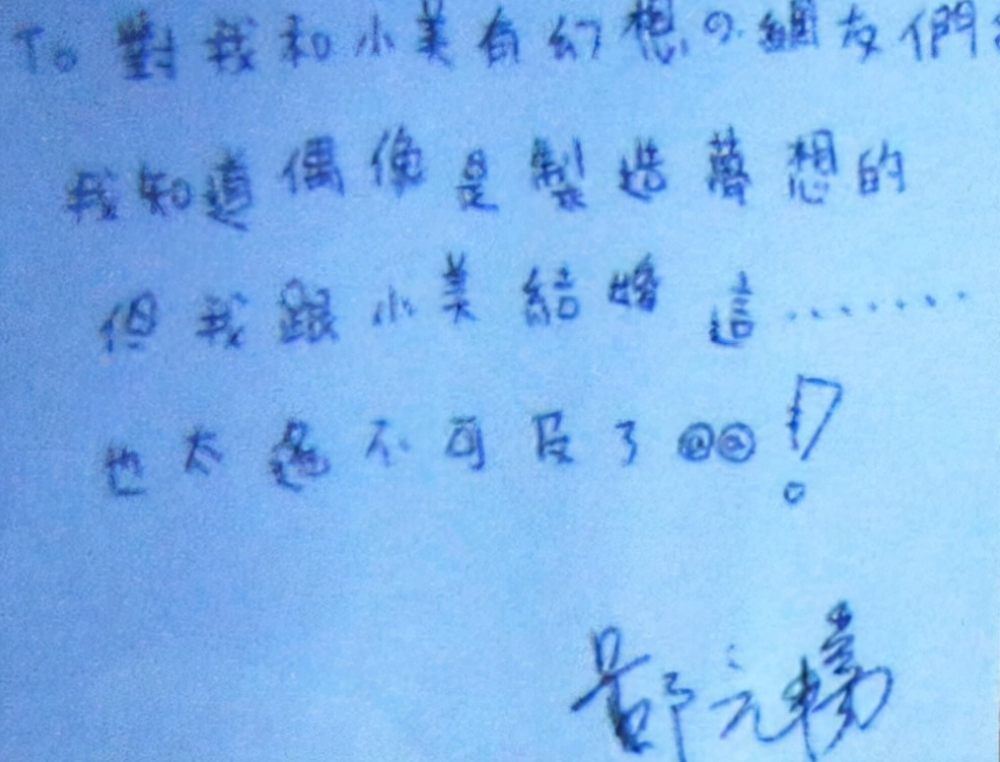 To 對我和小美有幻想の網友們
我知道偶像是製造夢想的
但我跟小美結婚這.......
也太遙不可及了@@!
元